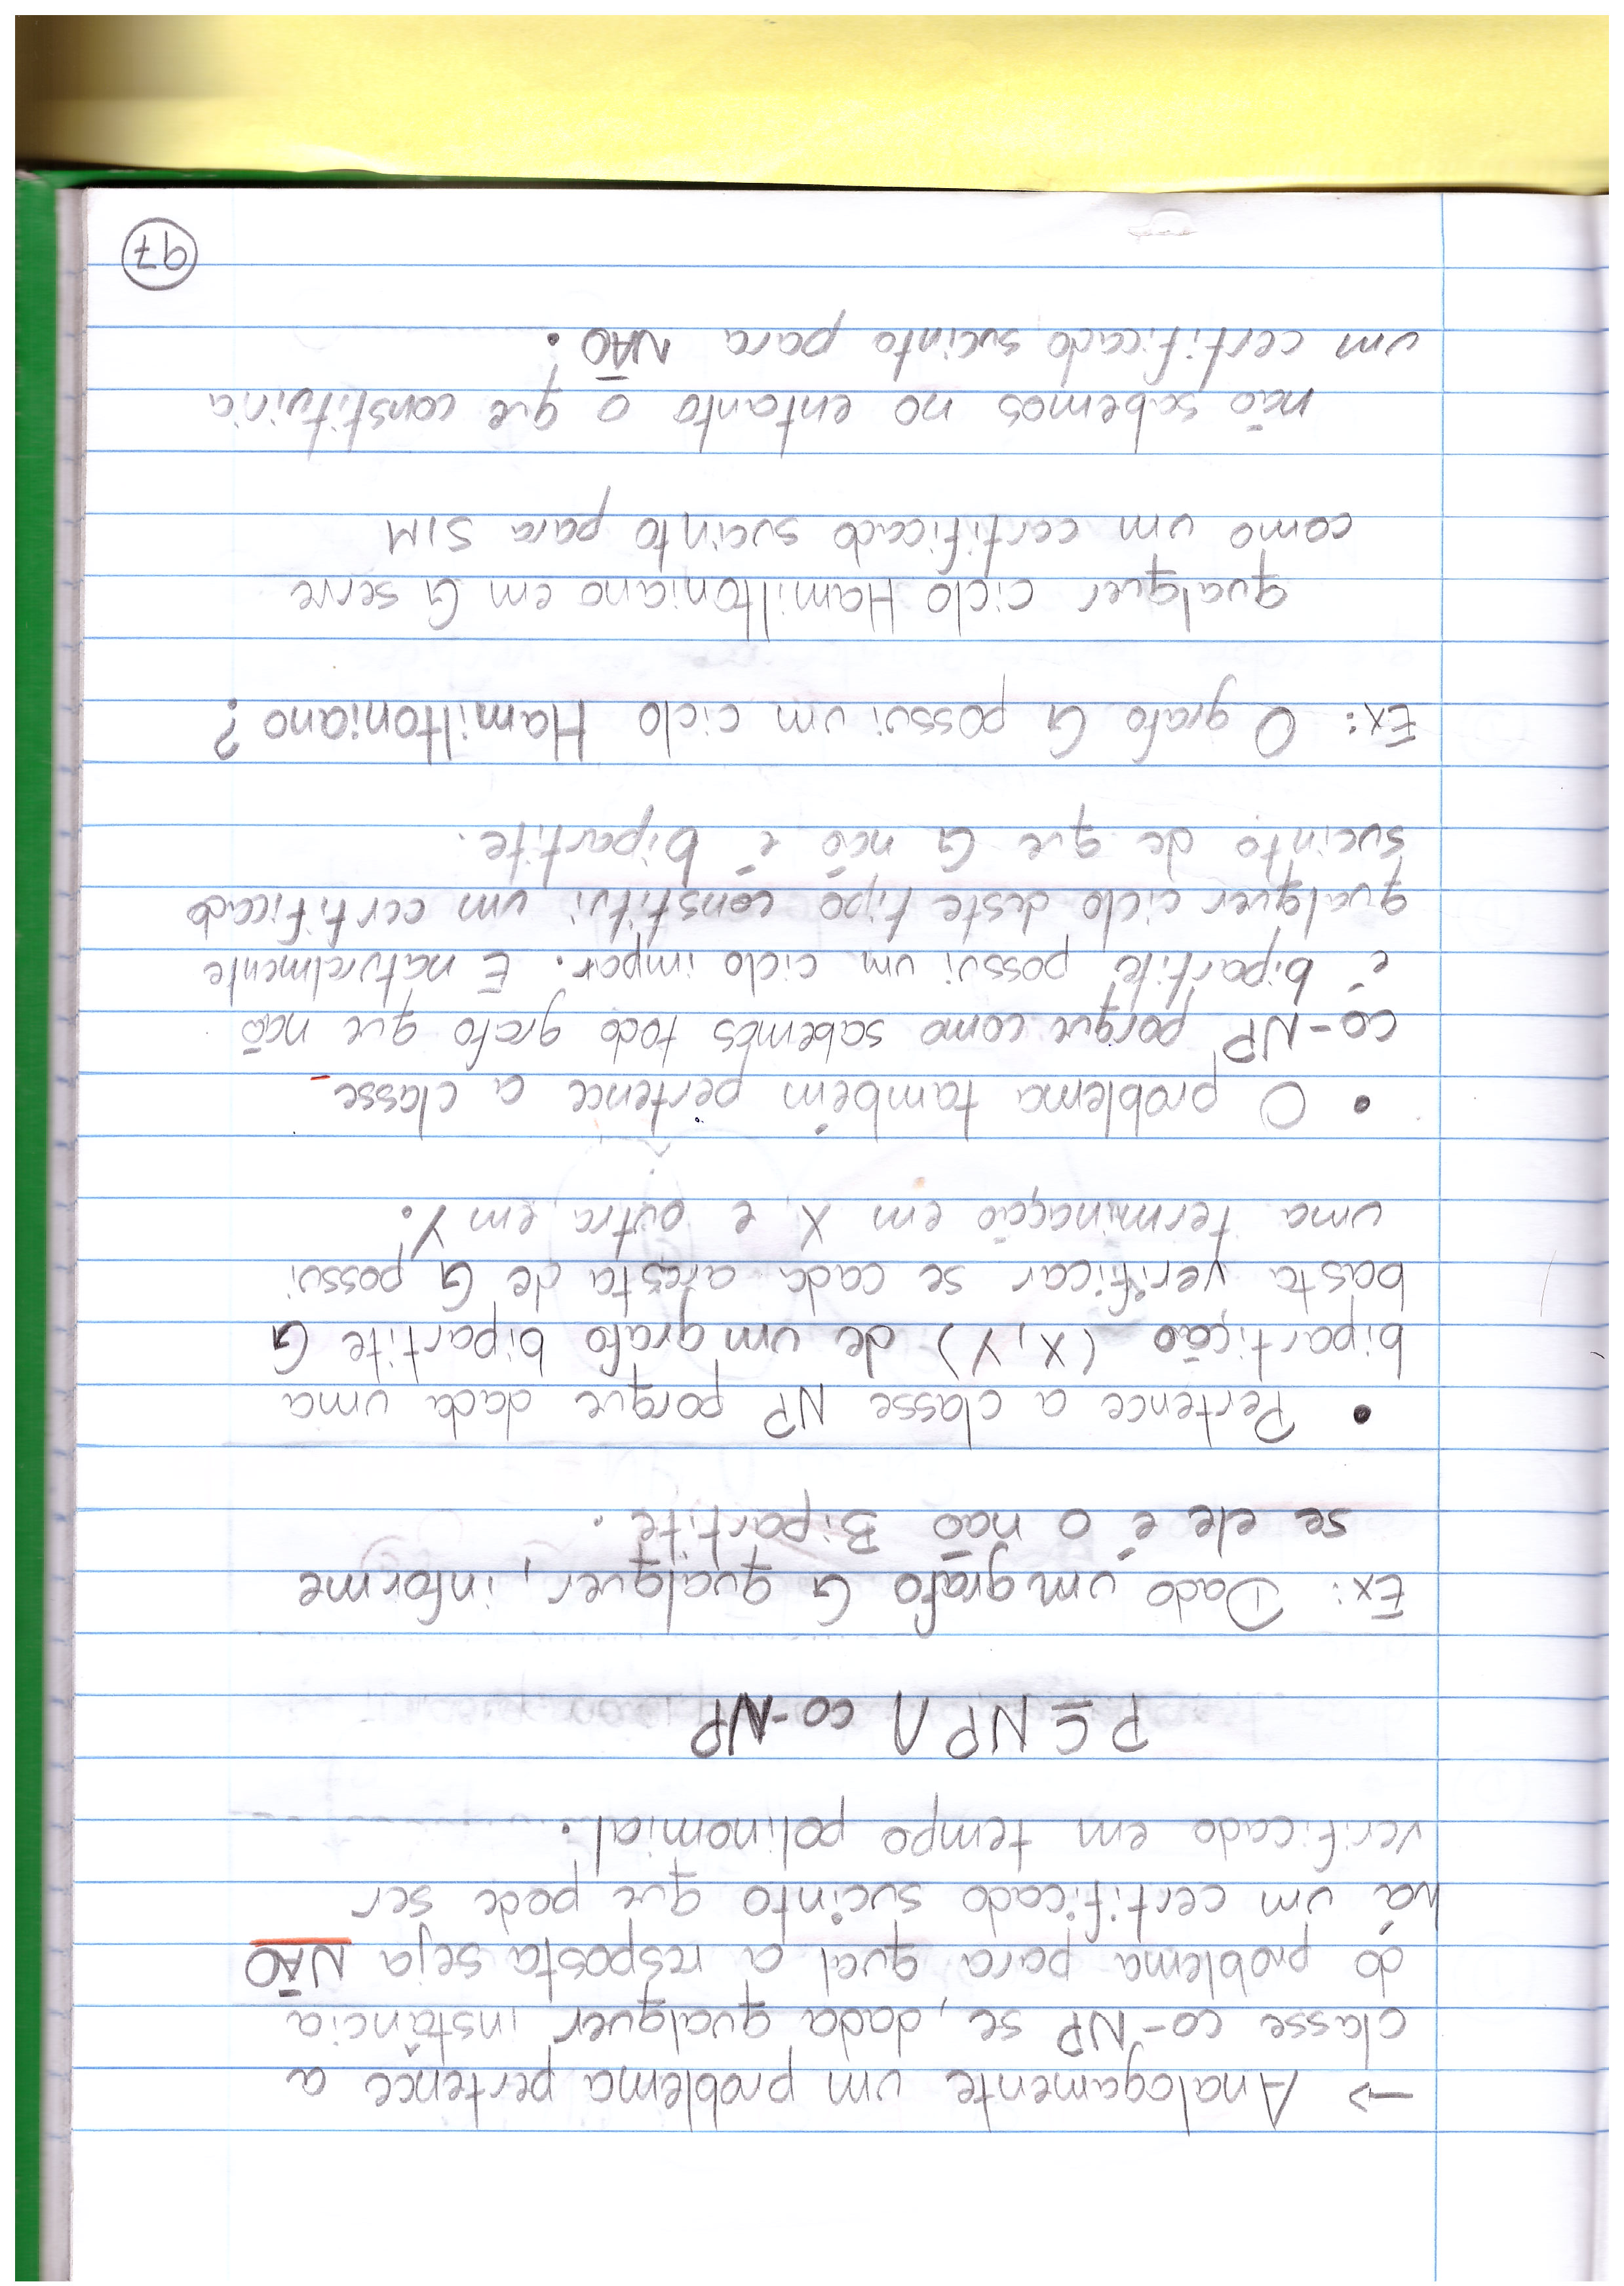 → Analogamente um problema pertence a
classe co-NP se, dada qualquer instância
do problema para qual a resposta seja NÃO
há um certificado sucinto que pode ser
verificado em tempo polinomial.
P ⊆ NP ∩ co-NP
Ex: Dado um grafo G qualquer, informe
se ele é o não Bipartite.
• Pertence a classe NP porque dada uma
bipartição (X, Y) de um grafo bipartite G
basta verificar se cada aresta de G possui
uma terminação em X e outra em Y.
• O problema também pertence a classe
co-NP porque como sabemos todo grafo que não
é bipartite possui um ciclo impar. E naturalmente
qualquer ciclo deste tipo constitui um certificado
sucinto de que G não é bipartite.
Ex: O grafo G possui um ciclo Hamiltoniano?
qualquer ciclo Hamiltoniano em G serve
como um certificado sucinto para SIM
não sabemos no entanto o que constituiria
um certificado sucinto para NÃO.
97